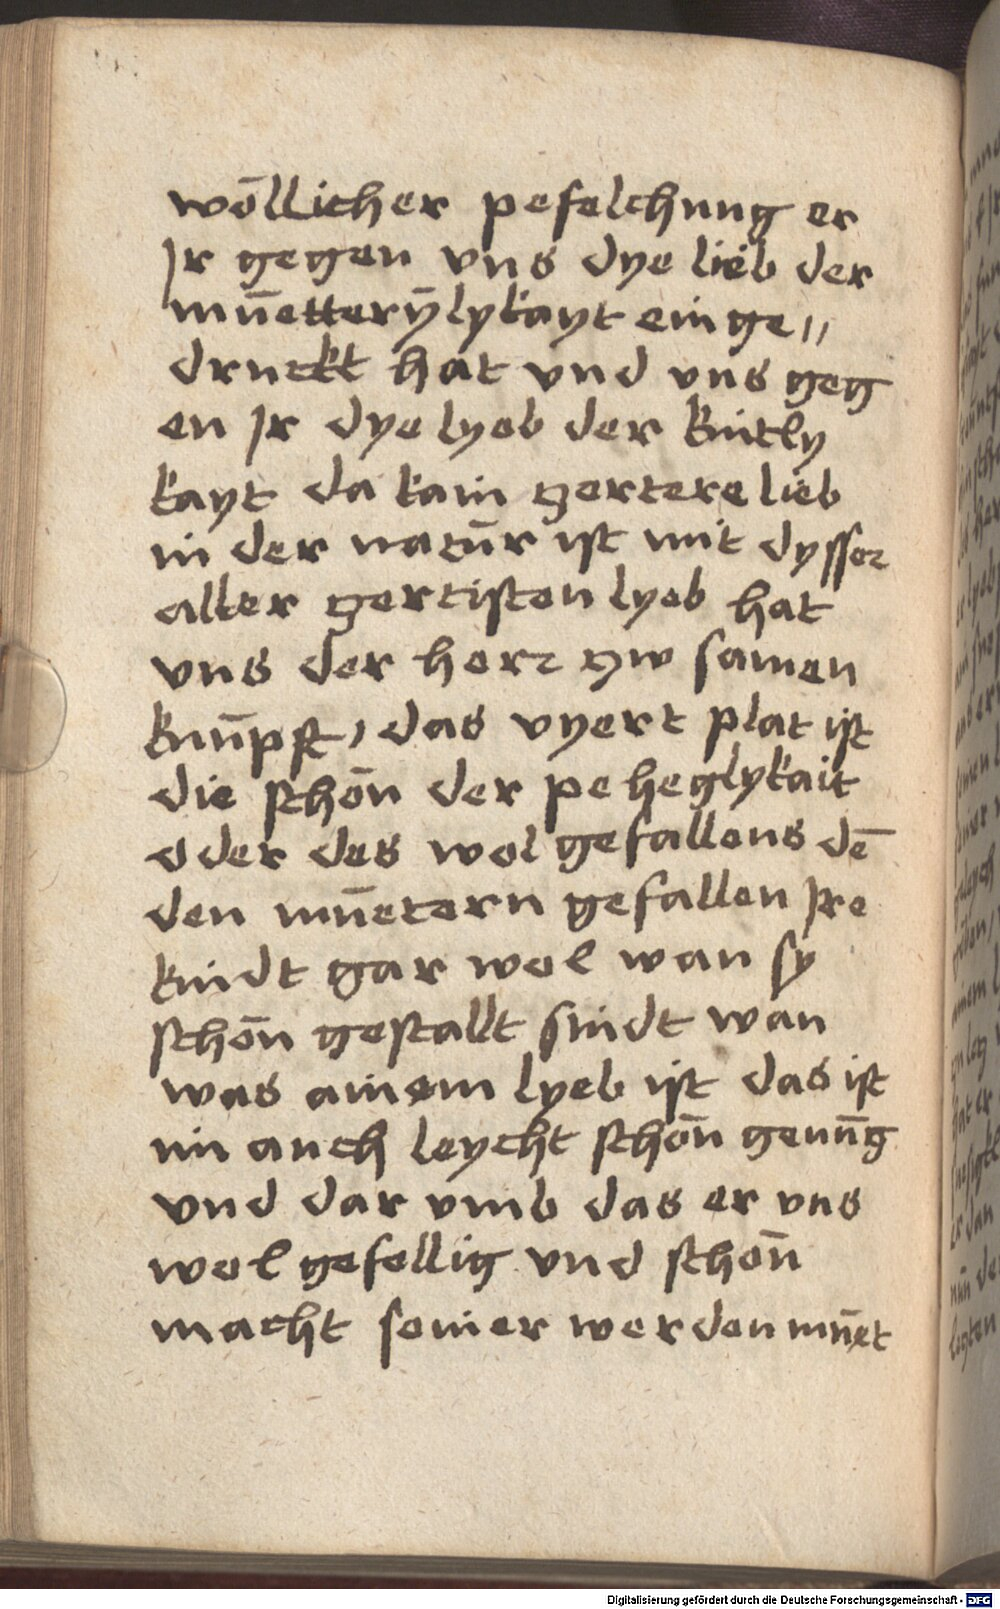 wōllicher pefelchung er
Jr gegen vns dye lieb der
mūetterȳlykayt einge//
druckt hat vnd vns geg
en Jr dye lyeb der kintly
kayt da kain zertere lieb
in der natūr ist mit dysser
aller zertisten lyeb hat
vns der herr zw samen
knūpft, das vyert plat ist
die schōn der peheglykait
oder des wolgefallens dē
den mūetern gefallen Jre
kindt gar wol wan sy
schōn gestallt sindt wan
was ainem lyeb ist das ist
im auch leycht schōn genūg
vnd dar vmb das er vns
wolgefellig vnd schon̄
macht seiner werden mūet
Digitalisierung gefördert durch die Deutsche Forschungsgemeinschaft - DFG